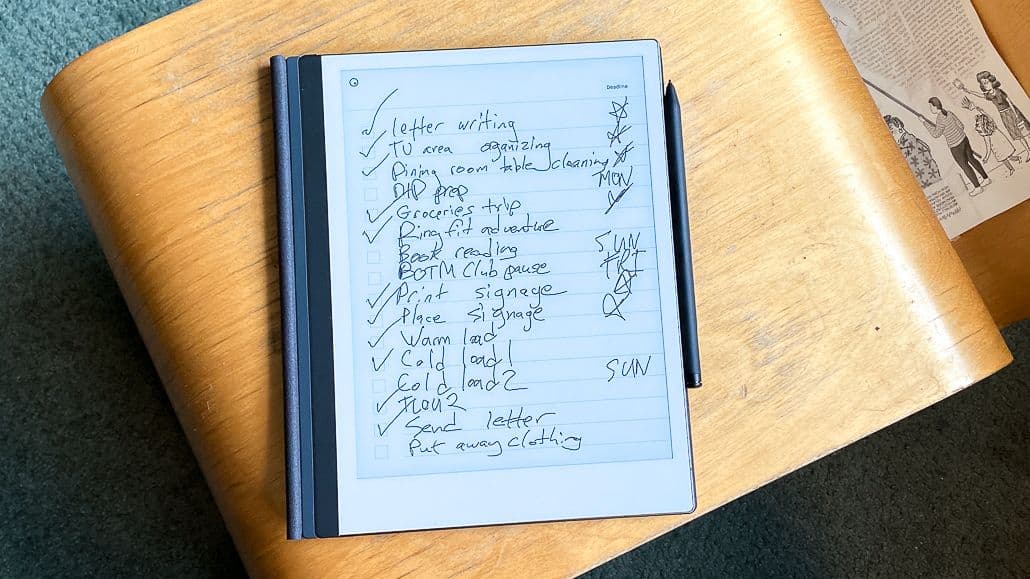 Deadline
letter writing
TV area organizing
Dining room table cleaning
DTD prep MON
Groceries trip
Ring fit adventure
Book reading SUN
BOTM Club pause FRI
Print signage
Place signage
Warm load
Cold load 1
Cold load 2 SUN
Send letter
Put away clothing